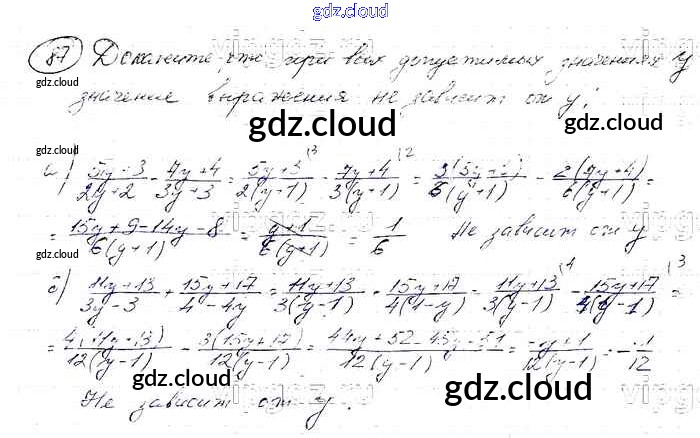 gdz.cloud
87) Докажите, что при всех допустимых значениях y
gdz.cloud
значение выражения не зависит от y:
gdz.cloud gdz.cloud
gdz.cloud
а) (5y+3)/(2y+2) - (7y+4)/(3y+3) = (5y+3)/(2(y+1)) (3 - (7y+4)/(3(y+1)) (2 = 3(5y+3)/(6(y+1)) - 2(7y+4)/(6(y+1)) =
= (15y+9-14y-8)/(6(y+1)) = (y+1)/(6(y+1)) = 1/6 Не зависит от y
gdz.cloud
б) (11y+13)/(3y-3) + (15y+17)/(4-4y) = (11y+13)/(3(y-1)) + (15y+17)/(4(1-y)) = (11y+13)/(3(y-1)) (4 - (15y+17)/(4(y-1)) (3 =
= 4(11y+13)/(12(y-1)) - 3(15y+17)/(12(y-1)) = (44y+52-45y-51)/(12(y-1)) = (-y+1)/(12(y-1)) = -1/12
gdz.cloud gdz.cloud gdz.cloud
Не зависит от y.